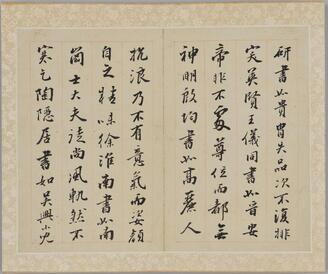 研書如貴胄失品次不復排
突英賢王儀同書如晉安
帝非不處尊位而都無
神明殷均書如高麗人
抗浪乃不有意氣而姿顔
自乏精味徐淮南書如南
岡士大夫徒尚風軌然不
寒乞陶隱居書如吳興小兒